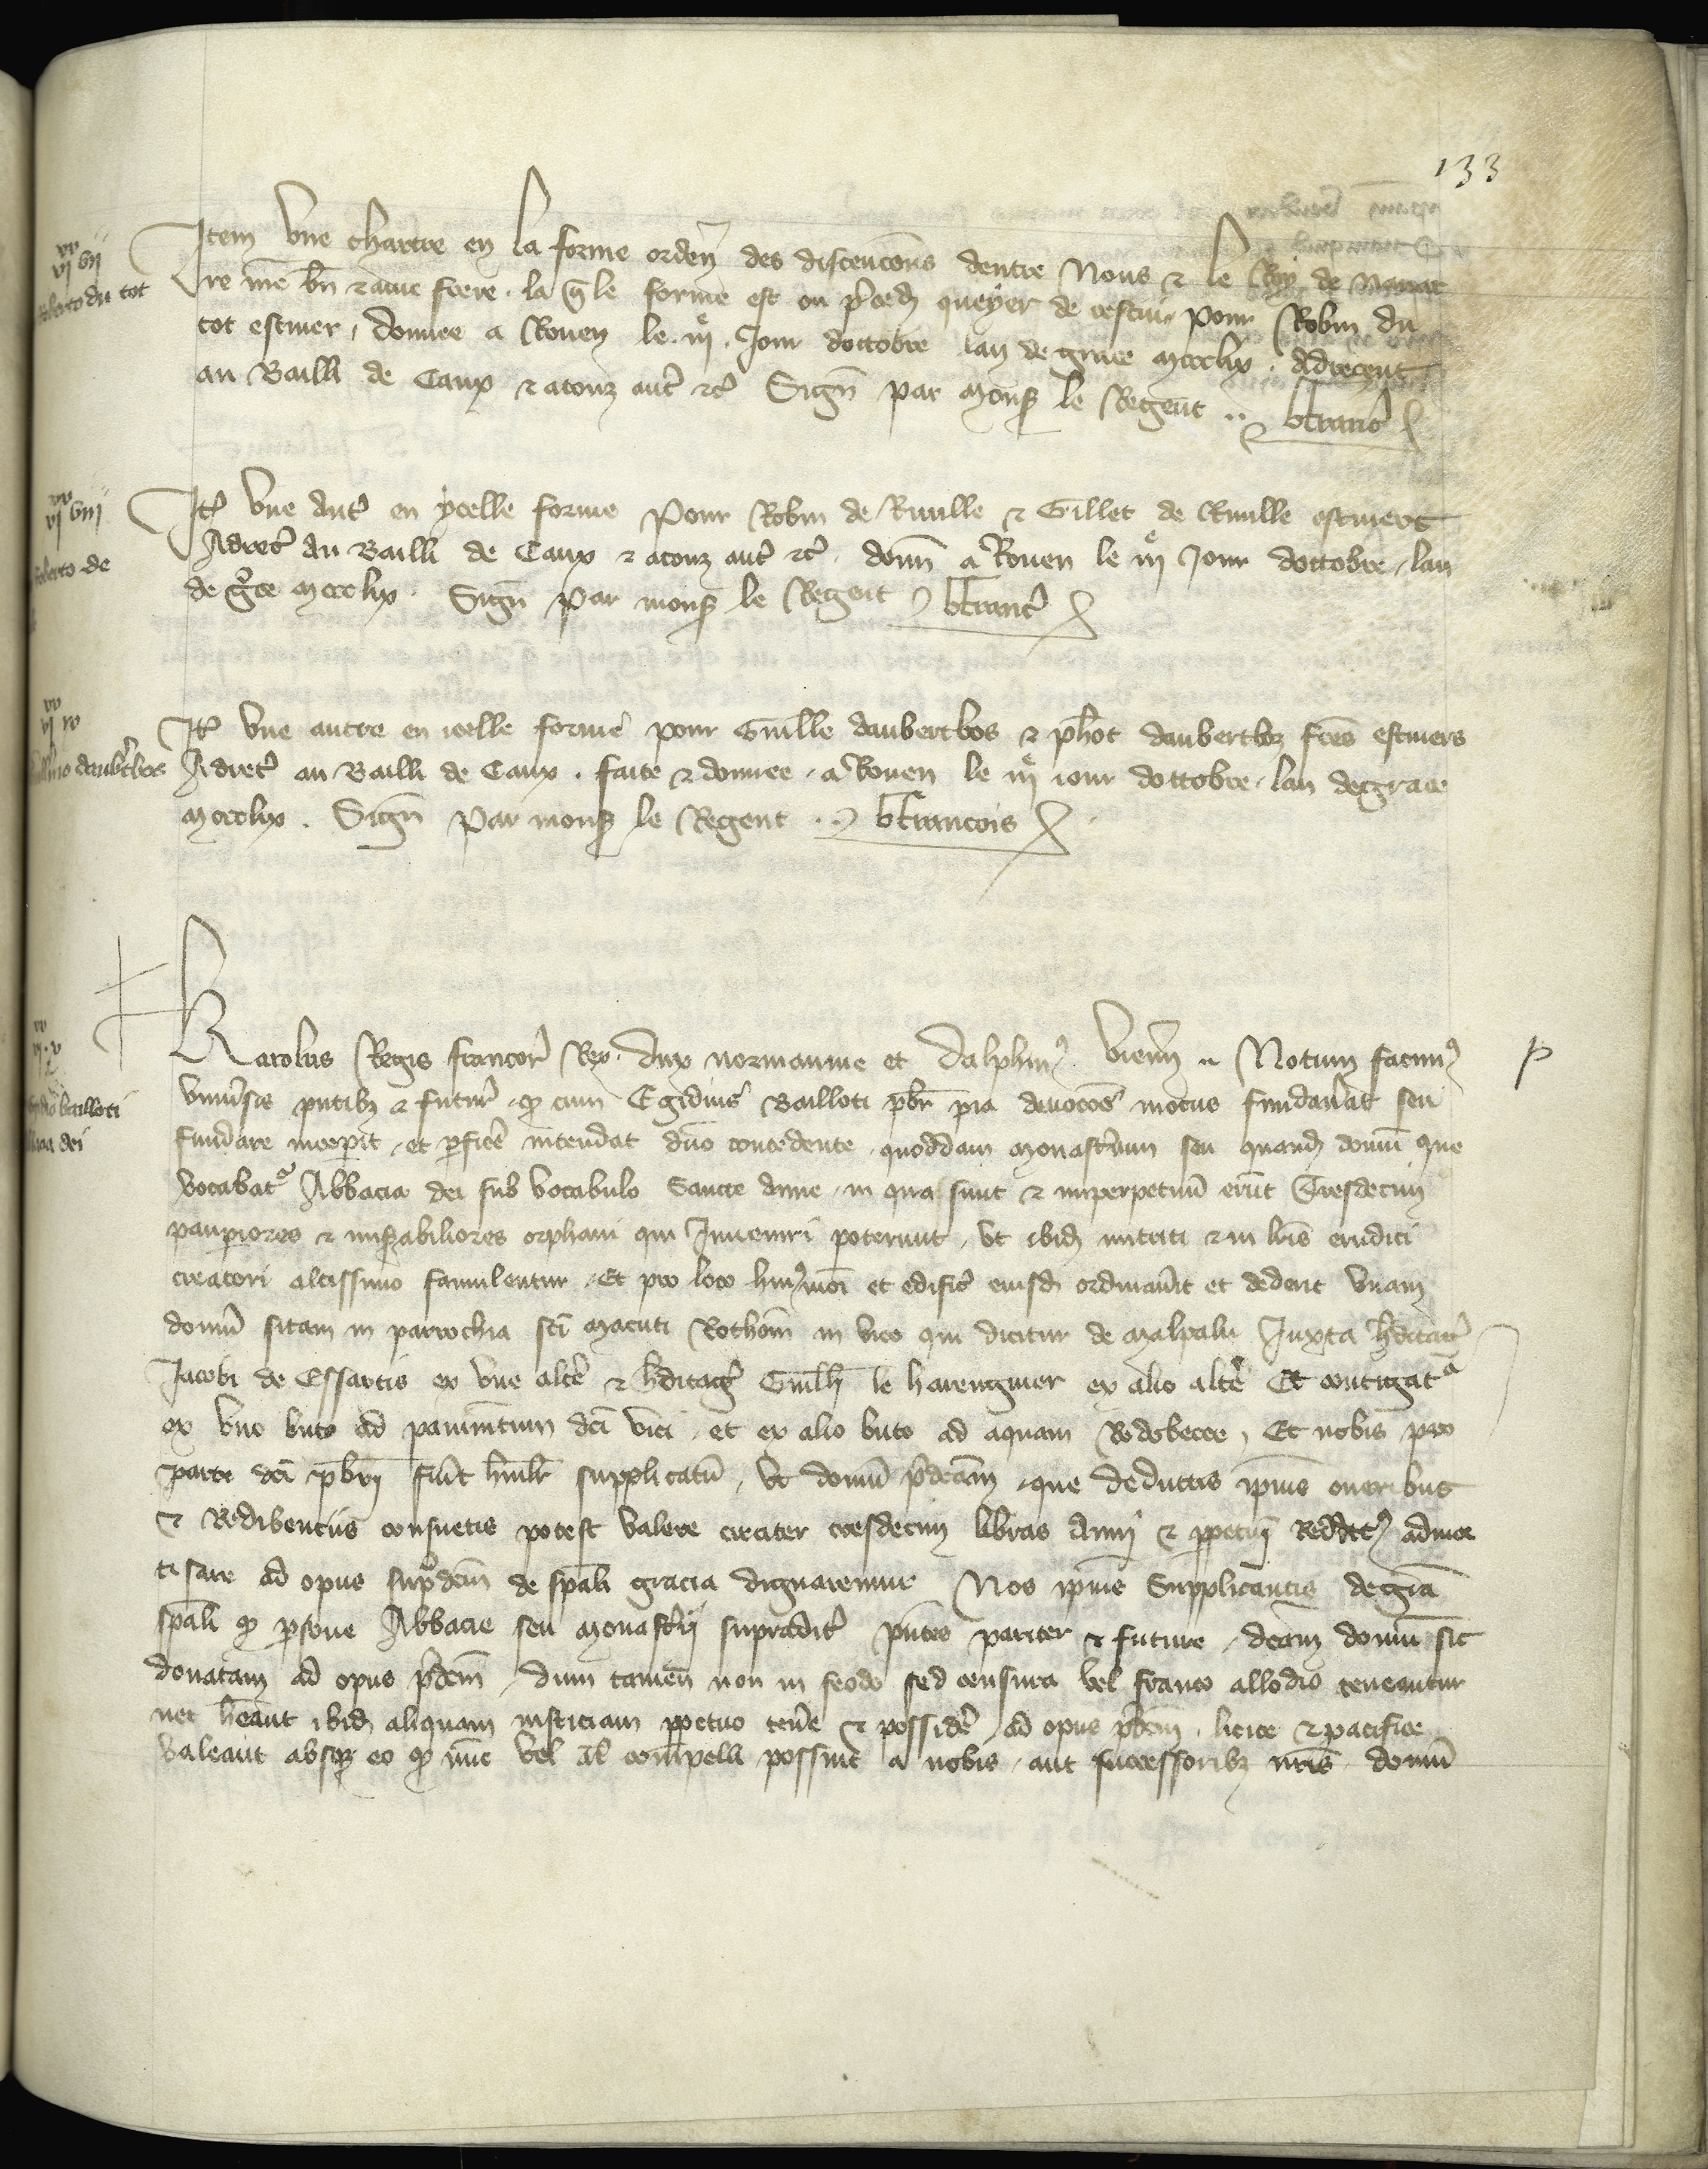 133
Item vne chartre en la forme orden̄ des discencōns dentre Nous & le Roy de Nauar
re n̄re bn̄ & ame frere . la q̄le forme est ou p̄ced queyer de cestui pour Robin du
tot escuier , donnee a Rouen le .iiie. Jour doctobre lan de grace mccclix . Adrecent
au Bailli de Caux & a touz aut̉ &c̉ Sign̄ par mons̉ le Regent .. bfranc̉
vixx vii
Roberto du tot
It̉ vne aut̉ en ycelle forme Pour Robin de Ruille & Gillet de Ruille escuiers
Adrec̉ au Bailli de Caux & a touz aut̉ &c̉ . donn̄ a Rouen le iiie Jour doctobre , lan
de gr̄ce mccclix . Sign̄ Par mons̉ le Regent bfranc̉
vixx viii
Roberto de
It̉ vne autre en icelle forme pour Guille daubertbos & ph̄ot daubertboz fr̄es escuiers
Adrec̉ au Bailli de Caux . faite & donnee , a Rouen le iiie iour doctobre , lan de grace
mccclix . Sign̄ Par mons̉ le Regent .. bfrancois
vixx ix
daub̉tbos
Karolus Regis francor̉ Rex . dux normannie et Dalphin9 vienn̄ .. Notum facim9
vniủsis pn̄tib3 & futur̉ , q̉ cum Egidius Bailloti pb̄r pia deuocōe motus fundaủit seu
fundare incepit , et p̉fic̉e intendat dn̄o concedente , quoddam monast̉ium seu quand̉ domū que
vocabat̉ Abbacia dei sub vocabulo Sancte Anne , in qua sunt & imperpetuū erūt Tresdecim
paup̉iores & mis̉abiliores orphani qui Inueniri poterunt , vt ibid̉ nutriti & in lr̄is eruditi
creatori altissimo famulentur , Et pro loco hui9mōi et edific̉ eiusd̉ ordinaủit et dederit vnam
domū sitam in parrochia sc̄i macuti Rothom̄ in vico qui dicitur de malpalu Juxta h̉ditatē
Jacobi de Essartis ex vne altē & h̉ditatē Guill̄i le harenguier ex alio altē Et contigat̉
ex vno buto ad pauim̄tum dc̄i vici , et ex alio buto ad aquam Rodobecce , Et nobis pro
parte dc̄i pb̄ri fūit hūilr̄ supplicatū , vt domū p̉dcām , que deductis ip̄ius oneribus
& Redibenciis consuetis potest valere circiter tresdecim libras Annⁱ & p̉petui Redditt9 admor
tisare ad opus sup̉dcm̄ de sp̄ali gracia dignaremur Nos ip̄ius Supplicantis de gr̄a
sp̄ali q̉ p̉sone Abbacie seu monast̉ii supradic̉ pn̄tes pariter & future , dcām domū sic
donatam ad opus p̉dcm̄ , dum tamen non in feodo sed censiua vel franco allodio teneantur
nec hēant ibid̉ aliquam iusticiam p̉petuo ten̉e & possid̉e , ad opus p̉dcm̄ , licite & pacifice
valeant absq3 eo q̉ nūc vel al̄ compelli possint a nobis , aut successorib3 nr̄is domū
vixx x
Egidio bailloti
Abbacia dei
p